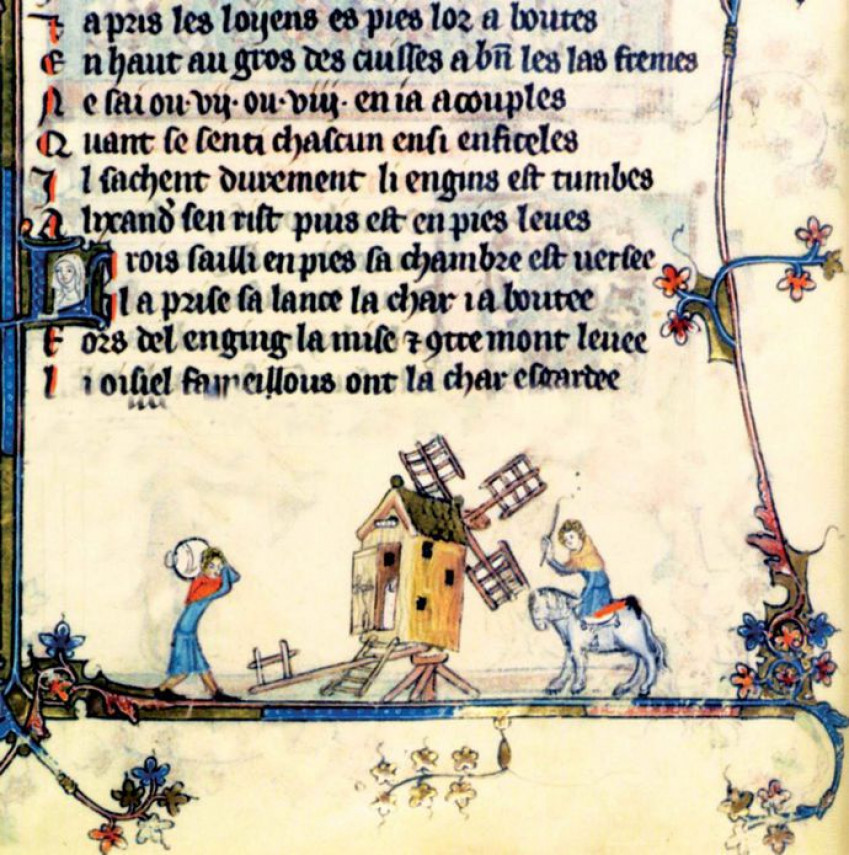 ⁊ apres les loyens es pies lor a boutes
En haut au gros des cuisses a bñ les las fremes
Ne sai ou·vij·ou·viij· en ia acouples
Quant se senti chascun ensi enficeles
Il sachent durement li engins est tumbes
Alixand' sen rist puis est en pies leues
Li rois sailli en pies sa chambre est uersee
Il a prise sa lance la char i a boutee
Fors del enging la mise ⁊ ꝯtre mont leuee
Li oisiel fameillous ont la char esgardee